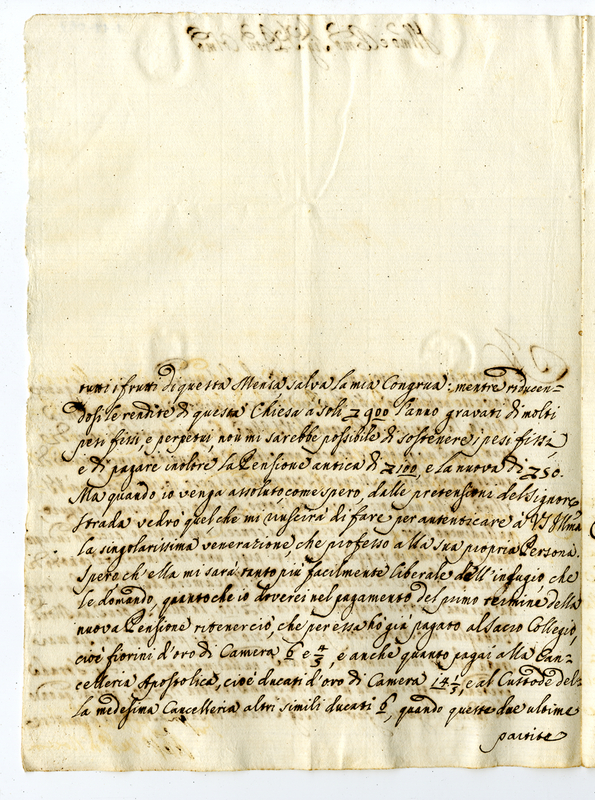 tutti i frutti di questa Mensa salva la mia Congrua: mentre riducen=
dosi le rendite di questa Chiesa à soli 900 l'anno gravati di molti
pesi fissi, e perpetui non mi sarebbe possibile di sostenere i pesi fissi,
e di pagare inoltre la Pensione antica di 100, e la nuova di 50.
Ma quando io venga assoluto come spero, dalle pretensioni del Signore
Strada vedrò quel che mi riuscirà di fare per autenticare à VS Illma
la singolarissima venerazione, che professo alla sua propria Persona.
Spero ch'ella mi sarà tanto più facilmente liberale dell', che
le domando, quanto che io doverei nel pagamento del primo termine della
nuova Pensione ritenerciò, che per essa hò già pagato al Sacro Collegio,
cioè fiorini d'oro di Camera 6 e 4/3, e anche quanto pagai alla Can=
celleria Apostolica, cioè ducati d'oro di Camera 14 1/3, e al Custode del=
la medesima Cancelleria altri simili ducati 6, quando queste due ultime
partite